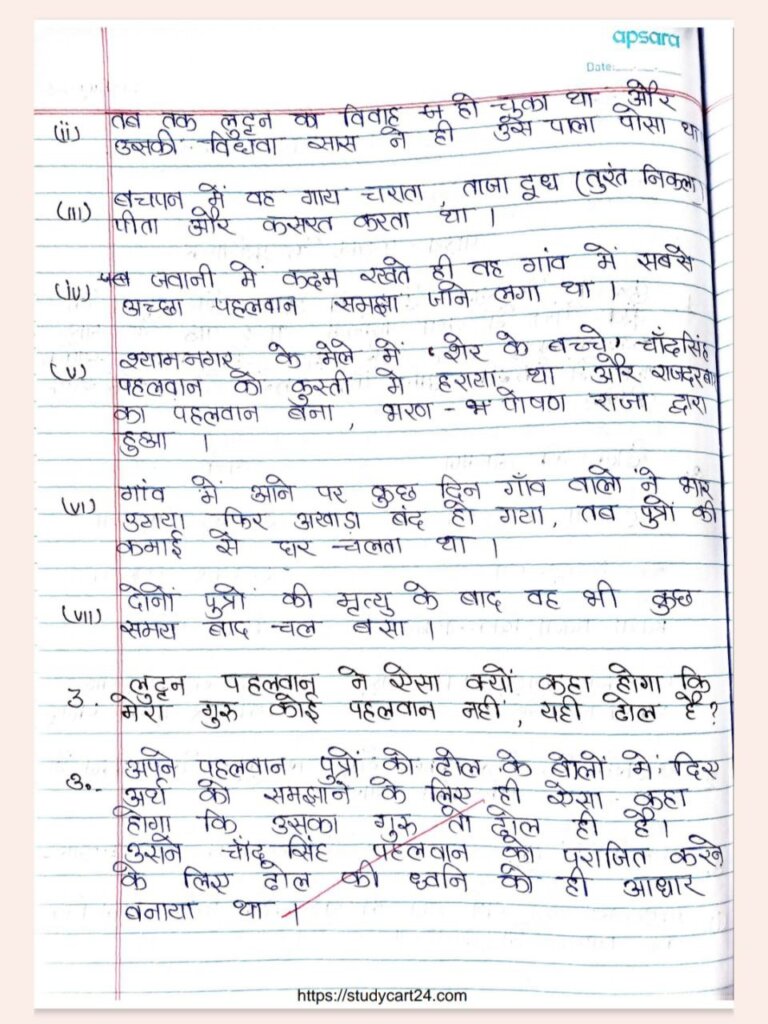 apsara
Date:
(ii) तब तक लुट्टन का विवाह हो चुका था और
उसकी विधवा सास ने ही उसे पाला पोसा था
(iii) बचपन में वह गाय चराता, ताजा दूध (तुरंत निकला)
पीता और कसरत करता था ।
(iv) जवानी में कदम रखते ही वह गांव में सबसे
अच्छा पहलवान समझा जाने लगा था ।
(v) श्यामनगर के मेले में 'शेर के बच्चे' चाँदसिंह
पहलवान को कुस्ती में हराया था और राजदरबा
का पहलवान बना, भरण - पोषण राजा द्वारा
हुआ ।
(vi) गांव में आने पर कुछ दिन गाँव वालों ने भार
उठाया फिर अखाडा बंद हो गया, तब पुत्रों की
कमाई से घर चलता था ।
(vii) दोनों पुत्रों की मृत्यु के बाद वह भी कुछ
समय बाद चल बसा ।
3. लुट्टन पहलवान ने ऐसा क्यों कहा होगा कि
मेरा गुरु कोई पहलवान नहीं, यही ढोल है?
उ.- अपने पहलवान पुत्रों को ढोल के बोलों में दिए
अर्थ को समझाने के लिए ही ऐसा कहा
होगा कि उसका गुरु तो ढोल ही है।
उसने चाँद सिंह पहलवान को पराजित करने
के लिए ढोल की ध्वनि को ही आधार
बनाया था ।
https://studycart24.com